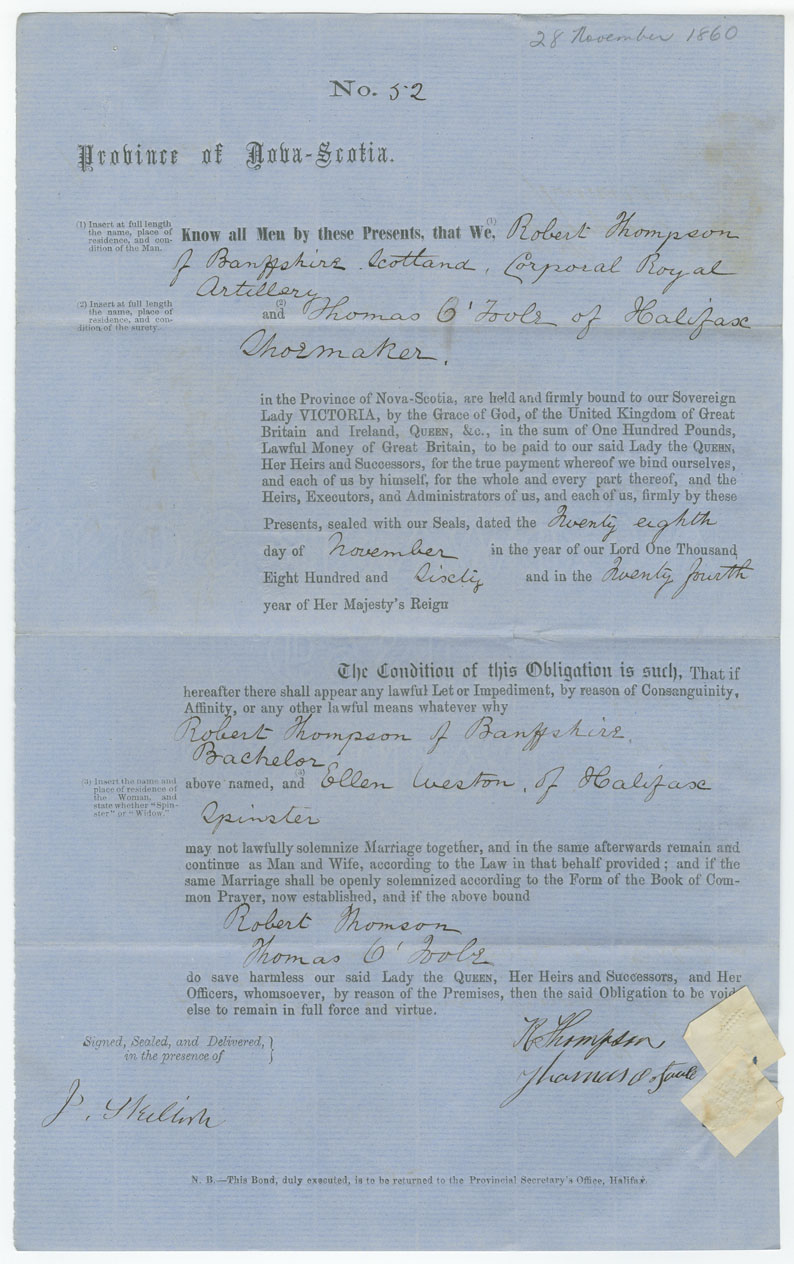 28 November 1860
No. 52
Province of Nova-Scotia.
(1) Insert at full length
the name, place of
residence, and con-
dition of the Man.
Know all Men by these Presents, that We, (1) Robert Thompson
of Banffshire Scotland, Corporal Royal
Artillery
(2) Insert at full length
the name, place of
residence, and con-
dition of the surety.
and (2) Thomas O'Toole of Halifax
Shoemaker.
in the Province of Nova-Scotia, are held and firmly bound to our Sovereign
Lady VICTORIA, by the Grace of God, of the United Kingdom of Great
Britain and Ireland, QUEEN, &c., in the sum of One Hundred Pounds,
Lawful Money of Great Britain, to be paid to our said Lady the QUEEN,
Her Heirs and Successors, for the true payment whereof we bind ourselves,
and each of us by himself, for the whole and every part thereof, and the
Heirs, Executors, and Administrators of us, and each of us, firmly by these
Presents, sealed with our Seals, dated the Twenty eighth
day of November in the year of our Lord One Thousand
Eight Hundred and Sixty and in the Twenty fourth
year of Her Majesty's Reign
The Condition of this Obligation is such, That if
hereafter there shall appear any lawful Let or Impediment, by reason of Consanguinity,
Affinity, or any other lawful means whatever why
Robert Thompson of Banffshire.
Bachelor
(3) Insert the name and
place of residence of
the Woman, and
state whether "Spin-
ster" or "Widow."
above named, and (3) Ellen Weston, of Halifax
Spinster
may not lawfully solemnize Marriage together, and in the same afterwards remain and
continue as Man and Wife, according to the Law in that behalf provided; and if the
same Marriage shall be openly solemnized according to the Form of the Book of Com-
mon Prayer, now established, and if the above bound
Robert Thomson
Thomas O'Toole
do save harmless our said Lady the QUEEN, Her Heirs and Successors, and Her
Officers, whomsoever, by reason of the Premises, then the said Obligation to be void,
else to remain in full force and virtue.
Signed, Sealed, and Delivered, }
in the presence of }
R Thompson
Thomas O.Toole
N. B.—This Bond, duly executed, is to be returned to the Provincial Secretary's Office, Halifax.